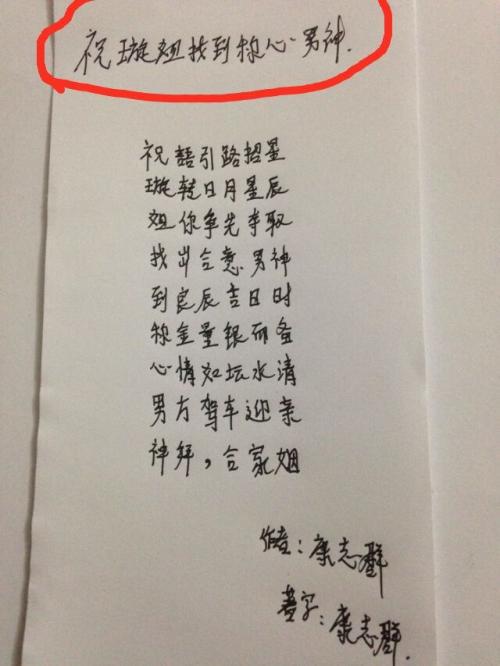 祝璇姐找到称心男神.
祝語引路招星
璇转日月星辰
姐你争先夺取
找出合意男神
到良辰吉日时
称金量银而备
心情如坛水清
男方驾车迎亲
神拜，合家姻
作者：康志群
著字：康志群.